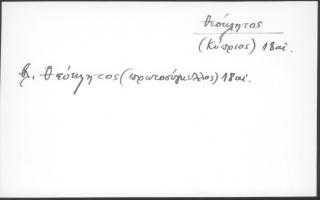 Θεόκλητος
(Κύπριος) 18 αἰ.
βλ. Θεόκλητος (πρωτοσύγκελλος) 18 αἰ.